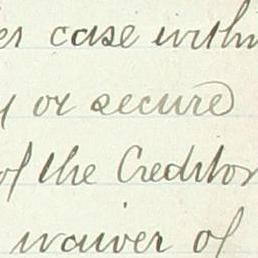 case within
or secure
of the Creditor
waiver of